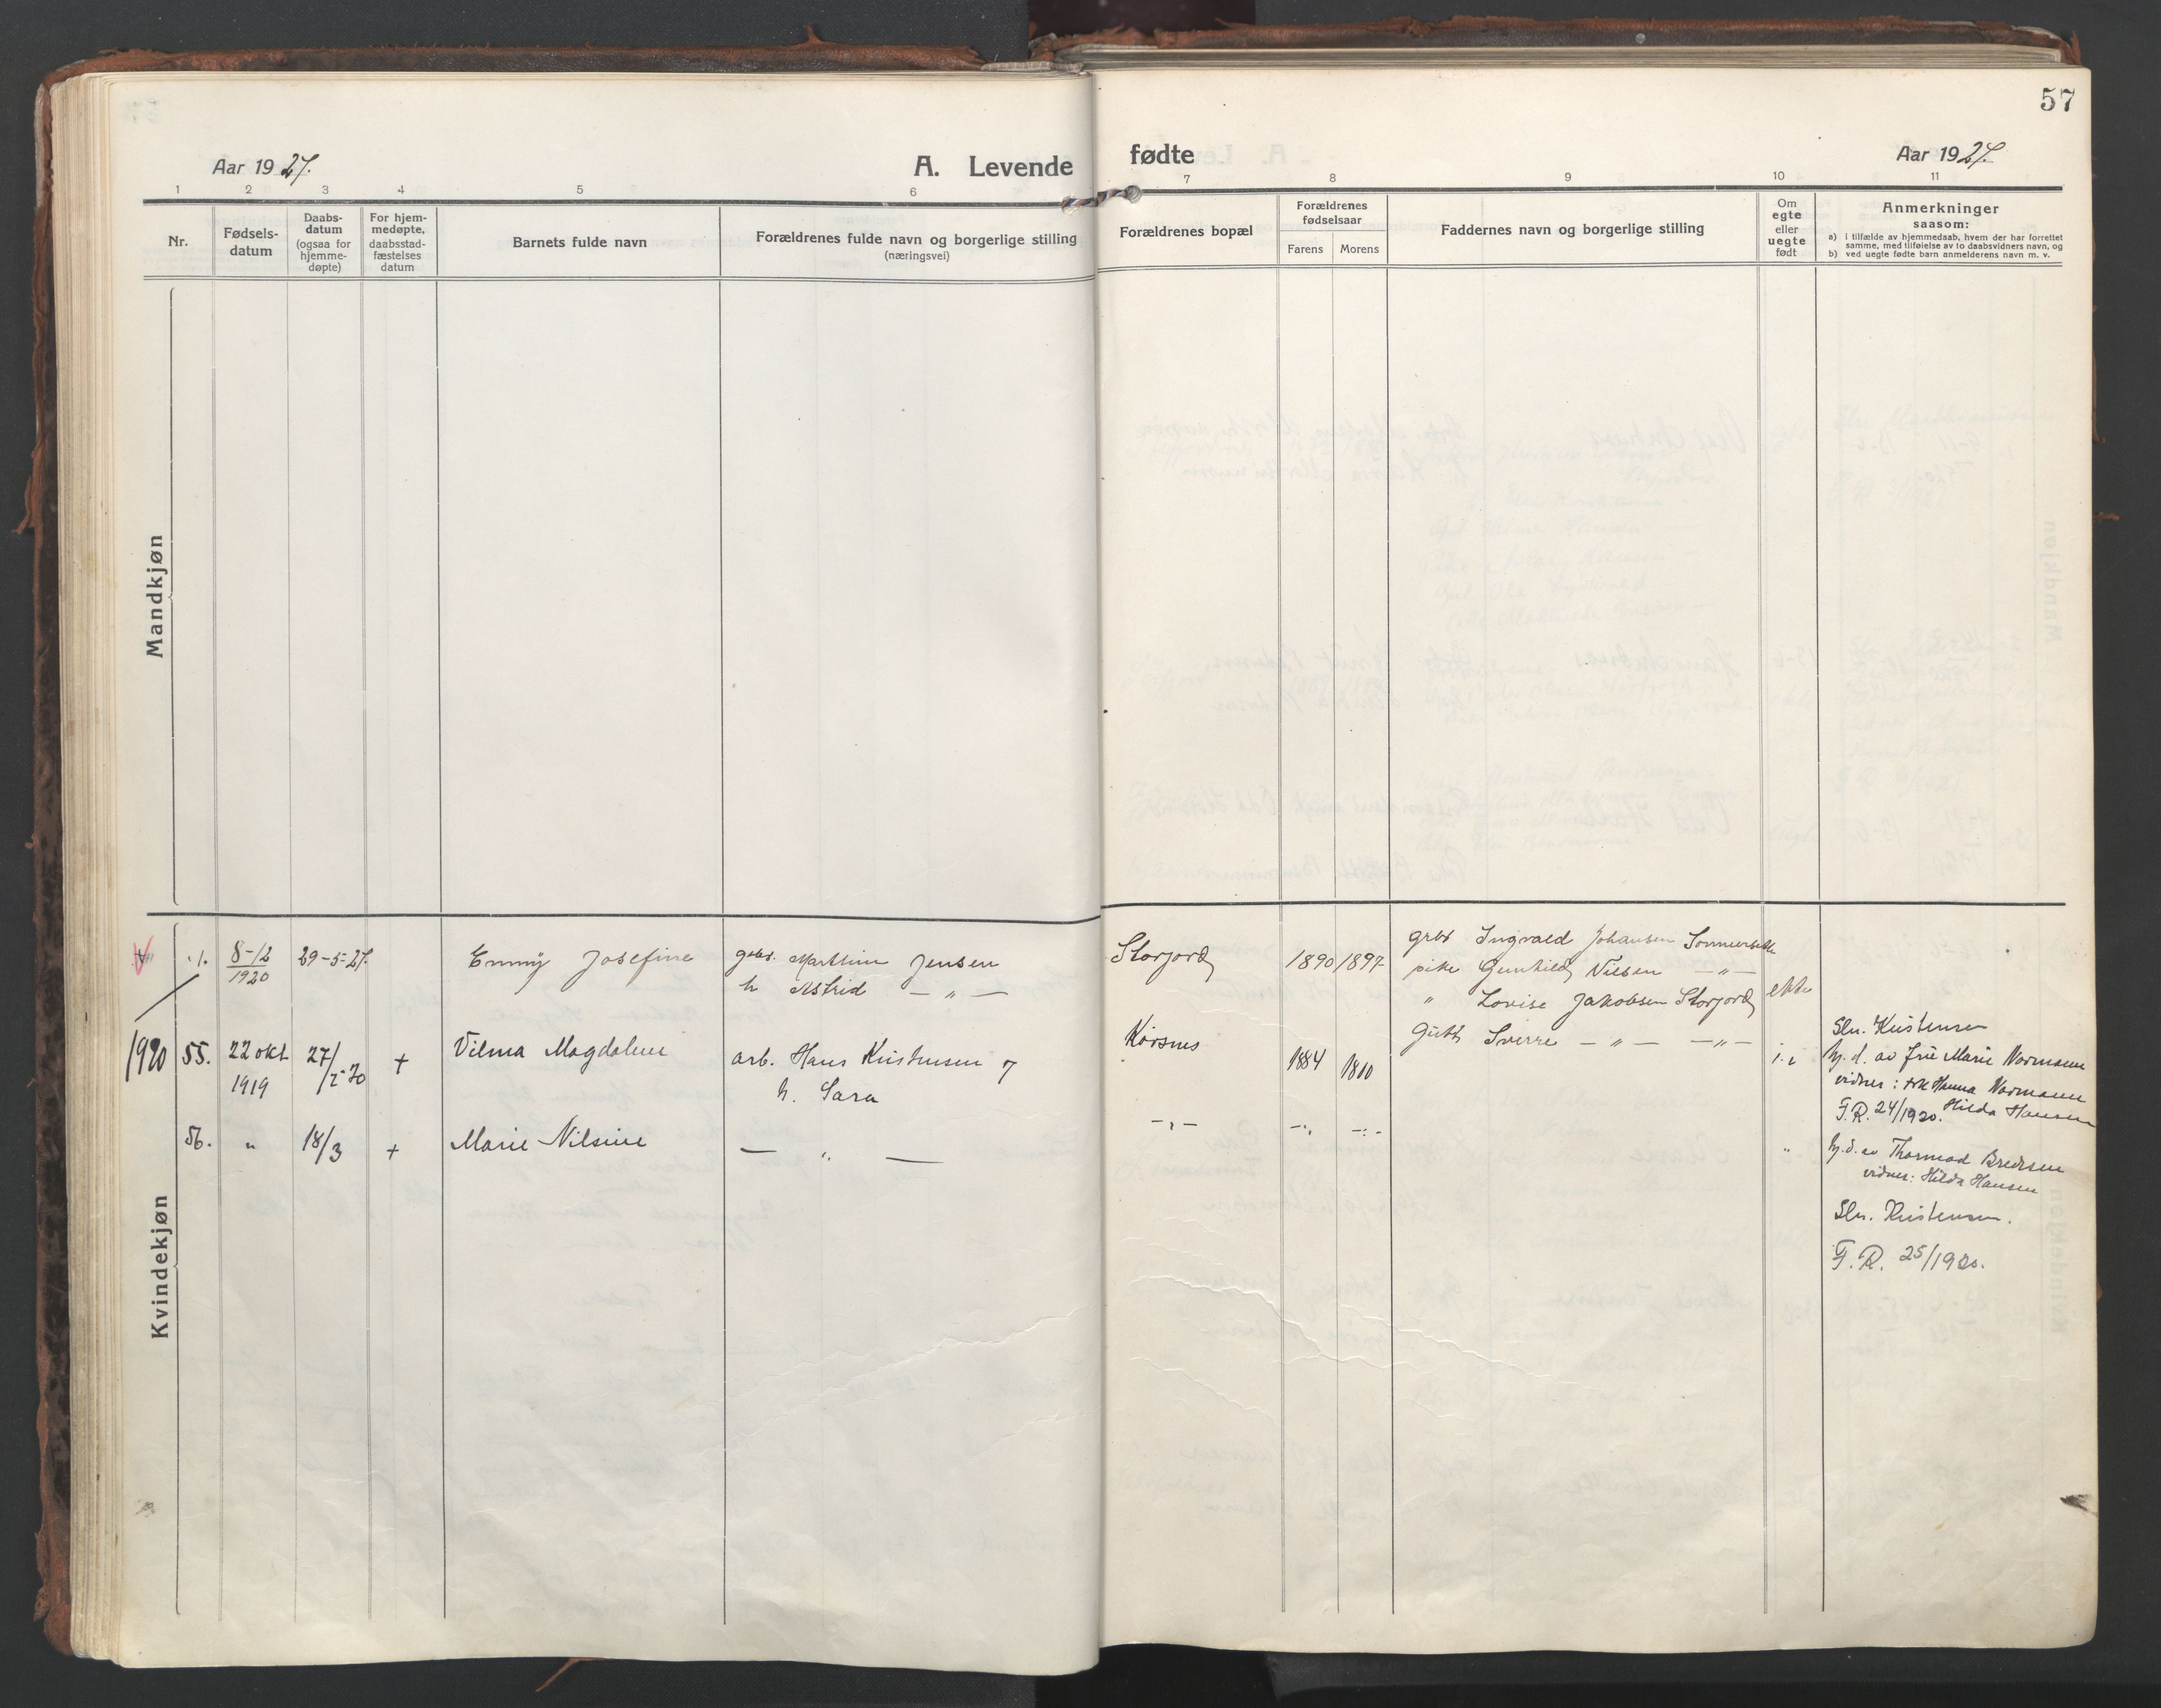 57
Aar 1927.
A. Levende fødte
Aar 1927.
1 2 3 4 5 6 7 8 9 10 11
Nr.
Fødsels-
datum
Daabs-
datum
(ogsaa for
hjemme-
døpte)
For hjem-
medøpte,
daabsstad-
fæstelses
datum
Barnets fulde navn
Forældrenes fulde navn og borgerlige stilling
(næringsvei)
Forældrenes bopæl
Forældrenes
fødselsaar
Farens Morens
Faddernes navn og borgerlige stilling
Om
egte
eller
uegte
født
Anmerkninger
saasom:
a) i tilfælde av hjemmedaab, hvem der har forrettet
samme, med tilføielse av to daabsvidners navn, og
b) ved uegte fødte barn anmelderens navn m. v.
Mandkjøn
Kvindekjøn
1. 8-12 1920 29-5-27. Emmy Josefine
Marthin Jensen
h Astrid — " —
Storjord 1890 1897
Ingvald Johansen
pike Gunhild Nilsen — " —
" Lovise Jakobsen Storjord
Gutt Sverre — " — — " —
ekte
1920 55. 22 okt 1919 27/ + Vilma Magdalene
arb. Hans Kristensen
h. Sara
Korsnes 1884
Sln. Kristensen
hj. d. av Marie Normann
vidner: Hanna Normann
F. R. 24/1920. Hilda Hansen
56. " 18/3 + Marie Nilsine
— " —
"
hj. d. av Thormod
vidner: Hilda Hansen
Sln. Kristensen.
F. R. 25/1920.